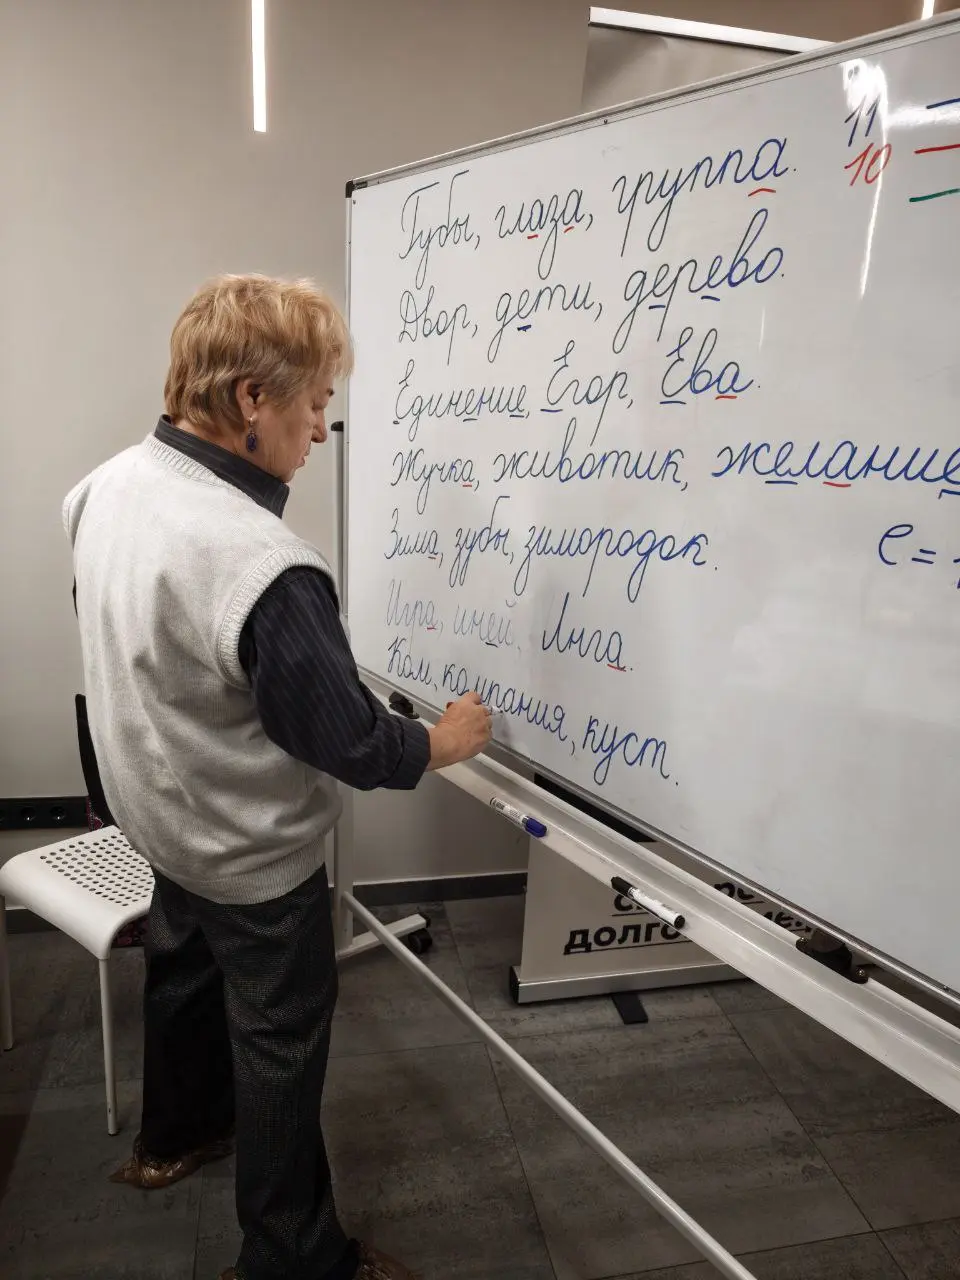 Губы, глаза, группа.
Двор, дети, дерево.
Единение, Егор, Ева.
Жучка, животик, желание
Зима, зубы, зимородок.
Игра, иней, Инга.
Ком, компания, куст.
11 –
10 –
е =
долго